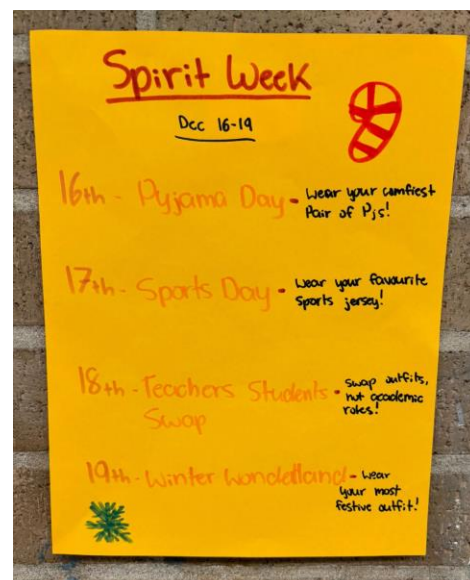 Spirit Week
Dec 16-19
16th - Pyjama Day - Wear your comfiest
Pair of Pjs!
17th - Sports Day - Wear your favourite
Sports jersey!
18th - Teachers Students - Swap outfits,
Swap not academic
roles!
19th - Winter Wonderland - Wear
your most
festive outfit!